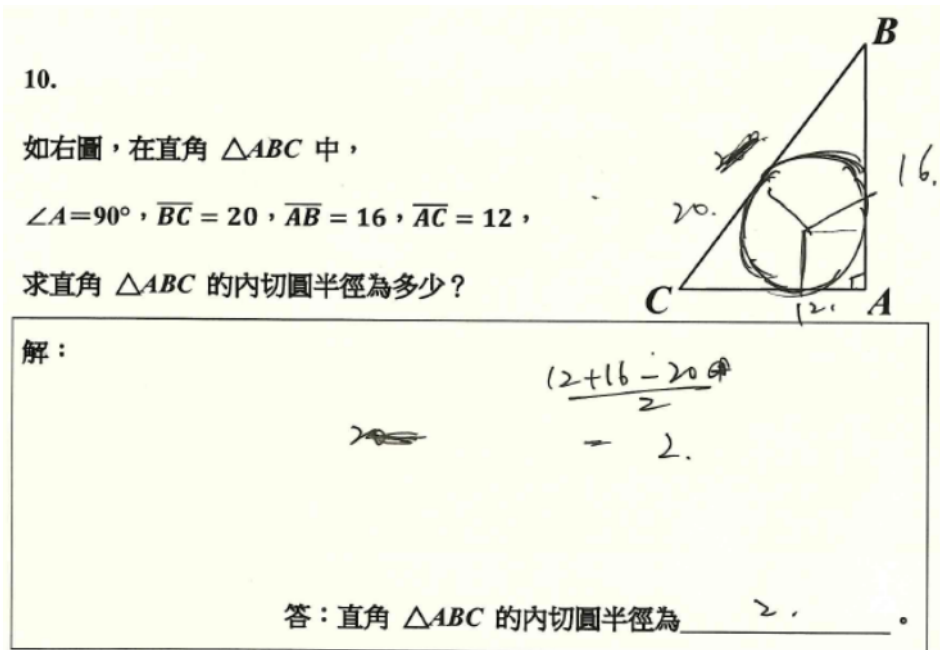 10.
如右圖，在直角 △ABC 中，
∠A=90°，BC = 20，AB = 16，AC = 12，
求直角 △ABC 的內切圓半徑為多少？
B
16.
20.
C
12.
A
解：
12+16-20
2
= 2.
答：直角 △ABC 的內切圓半徑為 2. 。